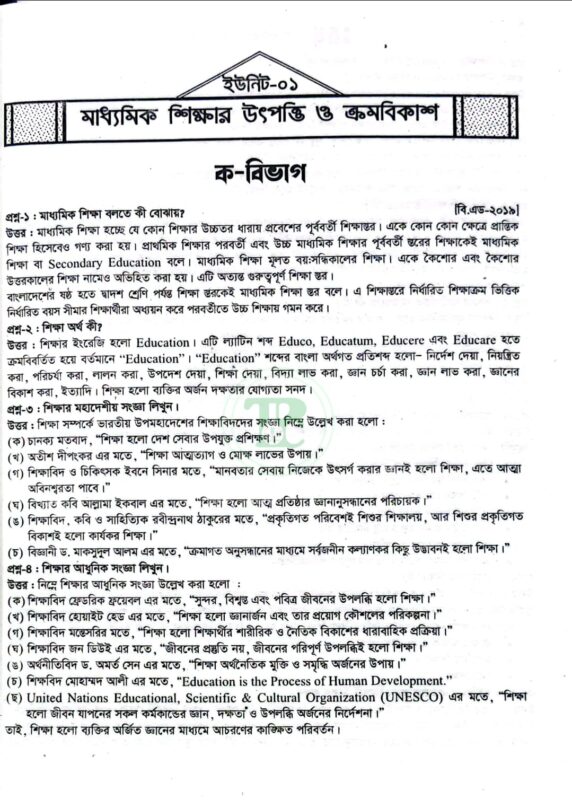 ইউনিট-০১
মাধ্যমিক শিক্ষার উৎপত্তি ও ক্রমবিকাশ
ক-বিভাগ
প্রশ্ন-১ : মাধ্যমিক শিক্ষা বলতে কী বোঝায়? [বি.এড-২০১৯]
উত্তর : মাধ্যমিক শিক্ষা হচ্ছে যে কোন শিক্ষার উচ্চতর ধারায় প্রবেশের পূর্ববর্তী শিক্ষাস্তর। একে কোন কোন ক্ষেত্রে প্রান্তিক
শিক্ষা হিসেবেও গণ্য করা হয়। প্রাথমিক শিক্ষার পরবর্তী এবং উচ্চ মাধ্যমিক শিক্ষার পূর্ববর্তী স্তরের শিক্ষাকেই মাধ্যমিক
শিক্ষা বা Secondary Education বলে। মাধ্যমিক শিক্ষা মূলত বয়ঃসন্ধিকালের শিক্ষা। একে কৈশোর এবং কৈশোর
উত্তরকালের শিক্ষা নামেও অভিহিত করা হয়। এটি অত্যন্ত গুরুত্বপূর্ণ শিক্ষা স্তর।
বাংলাদেশের ষষ্ঠ হতে দ্বাদশ শ্রেণি পর্যন্ত শিক্ষা স্তরকেই মাধ্যমিক শিক্ষা স্তর বলে। এ শিক্ষাস্তরে নির্ধারিত শিক্ষাক্রম ভিত্তিক
নির্ধারিত বয়স সীমার শিক্ষার্থীরা অধ্যয়ন করে পরবর্তীতে উচ্চ শিক্ষায় গমন করে।
প্রশ্ন-২ : শিক্ষা অর্থ কী?
উত্তর : শিক্ষার ইংরেজি হলো Education। এটি ল্যাটিন শব্দ Educo, Educatum, Educere এবং Educare হতে
ক্রমবিবর্তিত হয়ে বর্তমানে “Education”। “Education” শব্দের বাংলা অর্থগত প্রতিশব্দ হলো– নির্দেশ দেয়া, নিয়ন্ত্রিত
করা, পরিচর্যা করা, লালন করা, উপদেশ দেয়া, শিক্ষা দেয়া, বিদ্যা লাভ করা, জ্ঞান চর্চা করা, জ্ঞান লাভ করা, জ্ঞানের
বিকাশ করা, ইত্যাদি। শিক্ষা হলো ব্যক্তির অর্জন দক্ষতার যোগ্যতা সনদ।
প্রশ্ন-৩ : শিক্ষার মহাদেশীয় সংজ্ঞা লিখুন।
উত্তর: শিক্ষা সম্পর্কে ভারতীয় উপমহাদেশের শিক্ষাবিদদের সংজ্ঞা নিম্নে উল্লেখ করা হলো :
(ক) চানক্য মতবাদ, “শিক্ষা হলো দেশ সেবার উপযুক্ত প্রশিক্ষণ।”
(খ) অতীশ দীপংকর এর মতে, “শিক্ষা আত্মত্যাগ ও মোক্ষ লাভের উপায়।”
(গ) শিক্ষাবিদ ও চিকিৎসক ইবনে সিনার মতে, “মানবতার সেবায় নিজেকে উৎসর্গ করার জ্ঞানই হলো শিক্ষা, এতে আত্মা
অবিনশ্বরতা পাবে।”
(ঘ) বিখ্যাত কবি আল্লামা ইকবাল এর মতে, “শিক্ষা হলো আত্ম প্রতিষ্ঠার জ্ঞানানুসন্ধানের পরিচায়ক।”
(ঙ) শিক্ষাবিদ, কবি ও সাহিত্যিক রবীন্দ্রনাথ ঠাকুরের মতে, “প্রকৃতিগত পরিবেশই শিশুর শিক্ষালয়, আর শিশুর প্রকৃতিগত
বিকাশই হলো কার্যকর শিক্ষা।”
(চ) বিজ্ঞানী ড. মাকসুদুল আলম এর মতে, “ক্রমাগত অনুসন্ধানের মাধ্যমে সর্বজনীন কল্যাণকর কিছু উদ্ভাবনই হলো শিক্ষা।”
প্রশ্ন-৪ : শিক্ষার আধুনিক সংজ্ঞা লিখুন।
উত্তর : নিম্নে শিক্ষার আধুনিক সংজ্ঞা উল্লেখ করা হলো :
(ক) শিক্ষাবিদ ফ্রেডরিক ফ্রয়েবল এর মতে, “সুন্দর, বিশ্বস্ত এবং পবিত্র জীবনের উপলব্ধি হলো শিক্ষা।”
(খ) শিক্ষাবিদ হোয়াইট হেড এর মতে, “শিক্ষা হলো জ্ঞানার্জন এবং তার প্রয়োগ কৌশলের পরিকল্পনা।”
(গ) শিক্ষাবিদ মন্তেসরির মতে, “শিক্ষা হলো শিক্ষার্থীর শারীরিক ও নৈতিক বিকাশের ধারাবাহিক প্রক্রিয়া।”
(ঘ) শিক্ষাবিদ জন ডিউই এর মতে, “জীবনের প্রস্তুতি নয়, জীবনের পরিপূর্ণ উপলব্ধিই হলো শিক্ষা।”
(ঙ) অর্থনীতিবিদ ড. অমর্ত সেন এর মতে, “শিক্ষা অর্থনৈতিক মুক্তি ও সমৃদ্ধি অর্জনের উপায়।”
(চ) শিক্ষবিদ মোহাম্মদ আলী এর মতে, “Education is the Process of Human Development.”
(ছ) United Nations Educational, Scientific & Cultural Organization (UNESCO) এর মতে, “শিক্ষা
হলো জীবন যাপনের সকল কর্মকান্ডের জ্ঞান, দক্ষতা ও উপলব্ধি অর্জনের নির্দেশনা।”
তাই, শিক্ষা হলো ব্যক্তির অর্জিত জ্ঞানের মাধ্যমে আচরণের কাঙ্ক্ষিত পরিবর্তন।